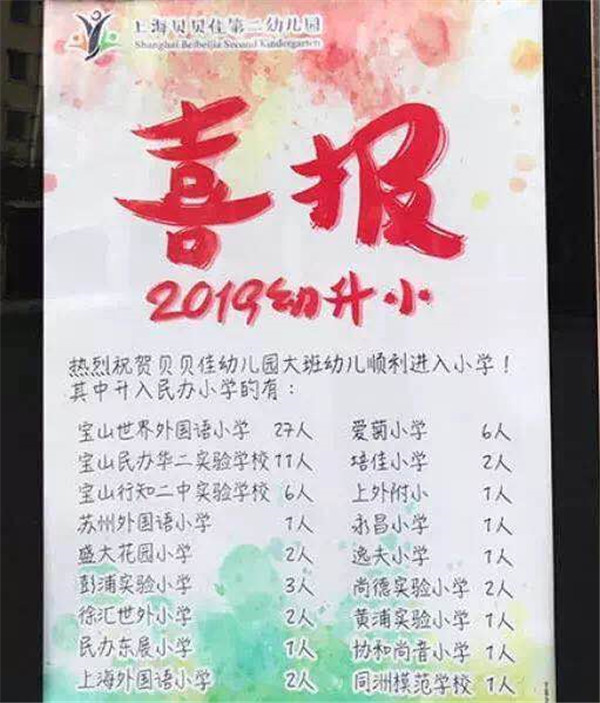 上海贝贝佳第二幼儿园
Shanghai Beibeijia Second Kindergarten
喜报
2019幼升小
热烈祝贺贝贝佳幼儿园大班幼儿顺利进入小学！
其中升入民办小学的有：
宝山世界外国语小学 27人 爱菊小学 6人
宝山民办华二实验学校 11人 培佳小学 2人
宝山行知二中实验学校 6人 上外附小 1人
苏州外国语小学 1人 永昌小学 1人
盛大花园小学 2人 逸夫小学 1人
彭浦实验小学 3人 尚德实验小学 2人
徐汇世外小学 2人 黄浦实验小学 1人
民办东展小学 1人 协和尚音小学 1人
上海外国语小学 2人 同洲模范学校 1人